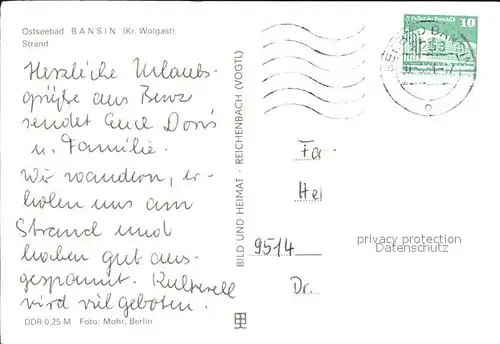 Ostseebad BANSIN (Kr. Wolgast)
Strand
Herzliche Urlaubs-
grüße aus Benz
sendet Euch Doris
u. Familie.
Wir wandern, er-
holen uns am
Strand und
haben gut aus-
gespannt. Kulturell
wird viel geboten.
DDR 0,25 M Foto: Mohr, Berlin
BILD UND HEIMAT · REICHENBACH (VOGTL)
10
SEEBAD BANSIN
2253
Fa
Hei
9514
Dr.
privacy protection
Datenschutz